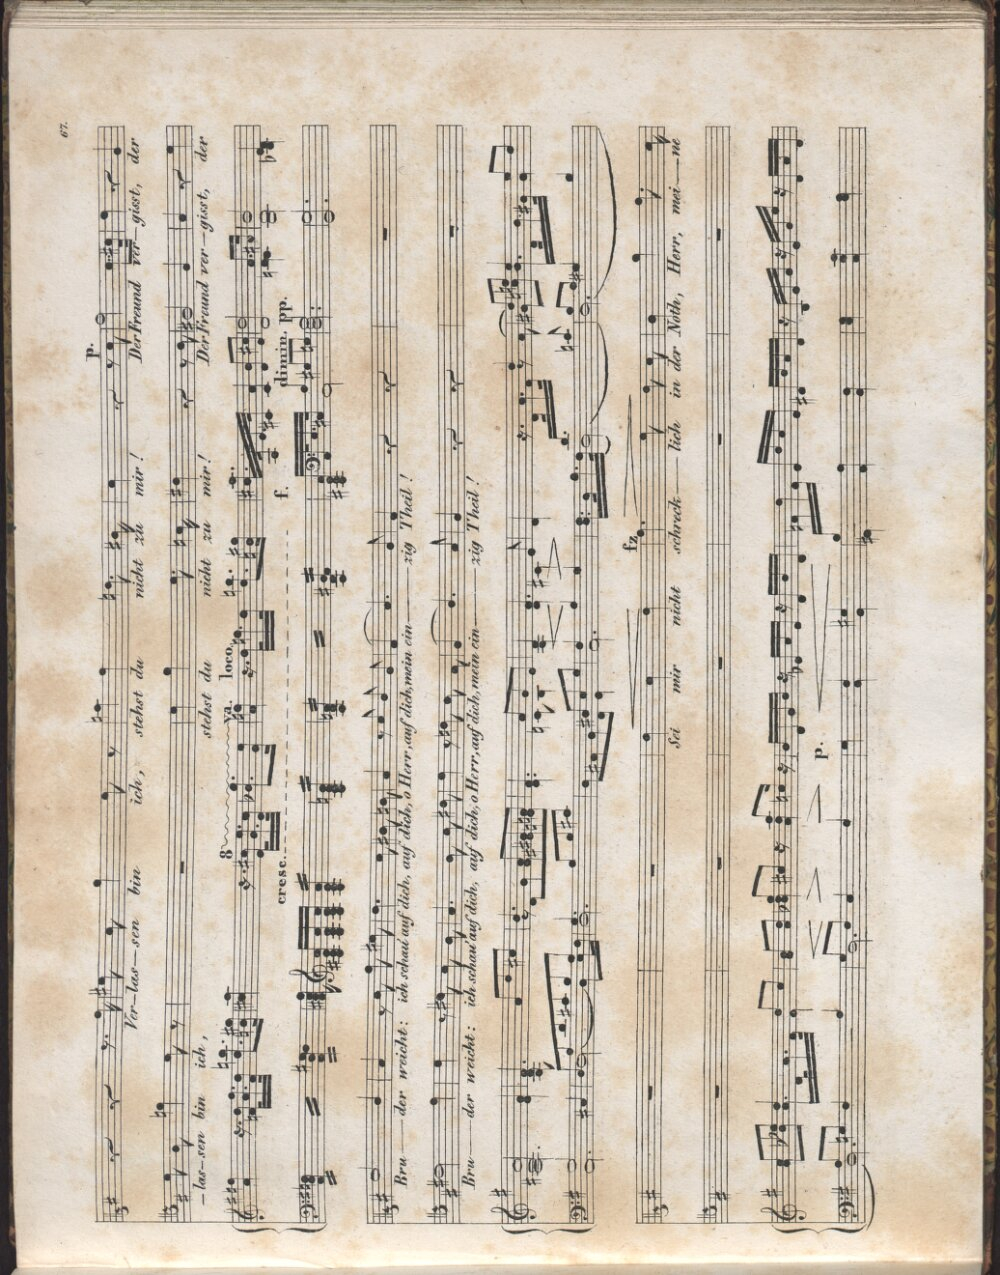 67.
p.
Ver-las-sen bin ich, stehst du nicht zu mir! Der Freund ver-gisst, der
-las-sen bin ich, stehst du nicht zu mir! Der Freund ver-gisst, der
8 va. loco.
cresc. f. dimin. pp.
Bru-der weicht: ich schau' auf dich, auf dich, o Herr, auf dich, mein ein-zig Theil!
Bru-der weicht: ich schau' auf dich, auf dich, o Herr, auf dich, mein ein-zig Theil!
fz
Sei mir nicht schreck-lich in der Noth, Herr, mei-ne
p.